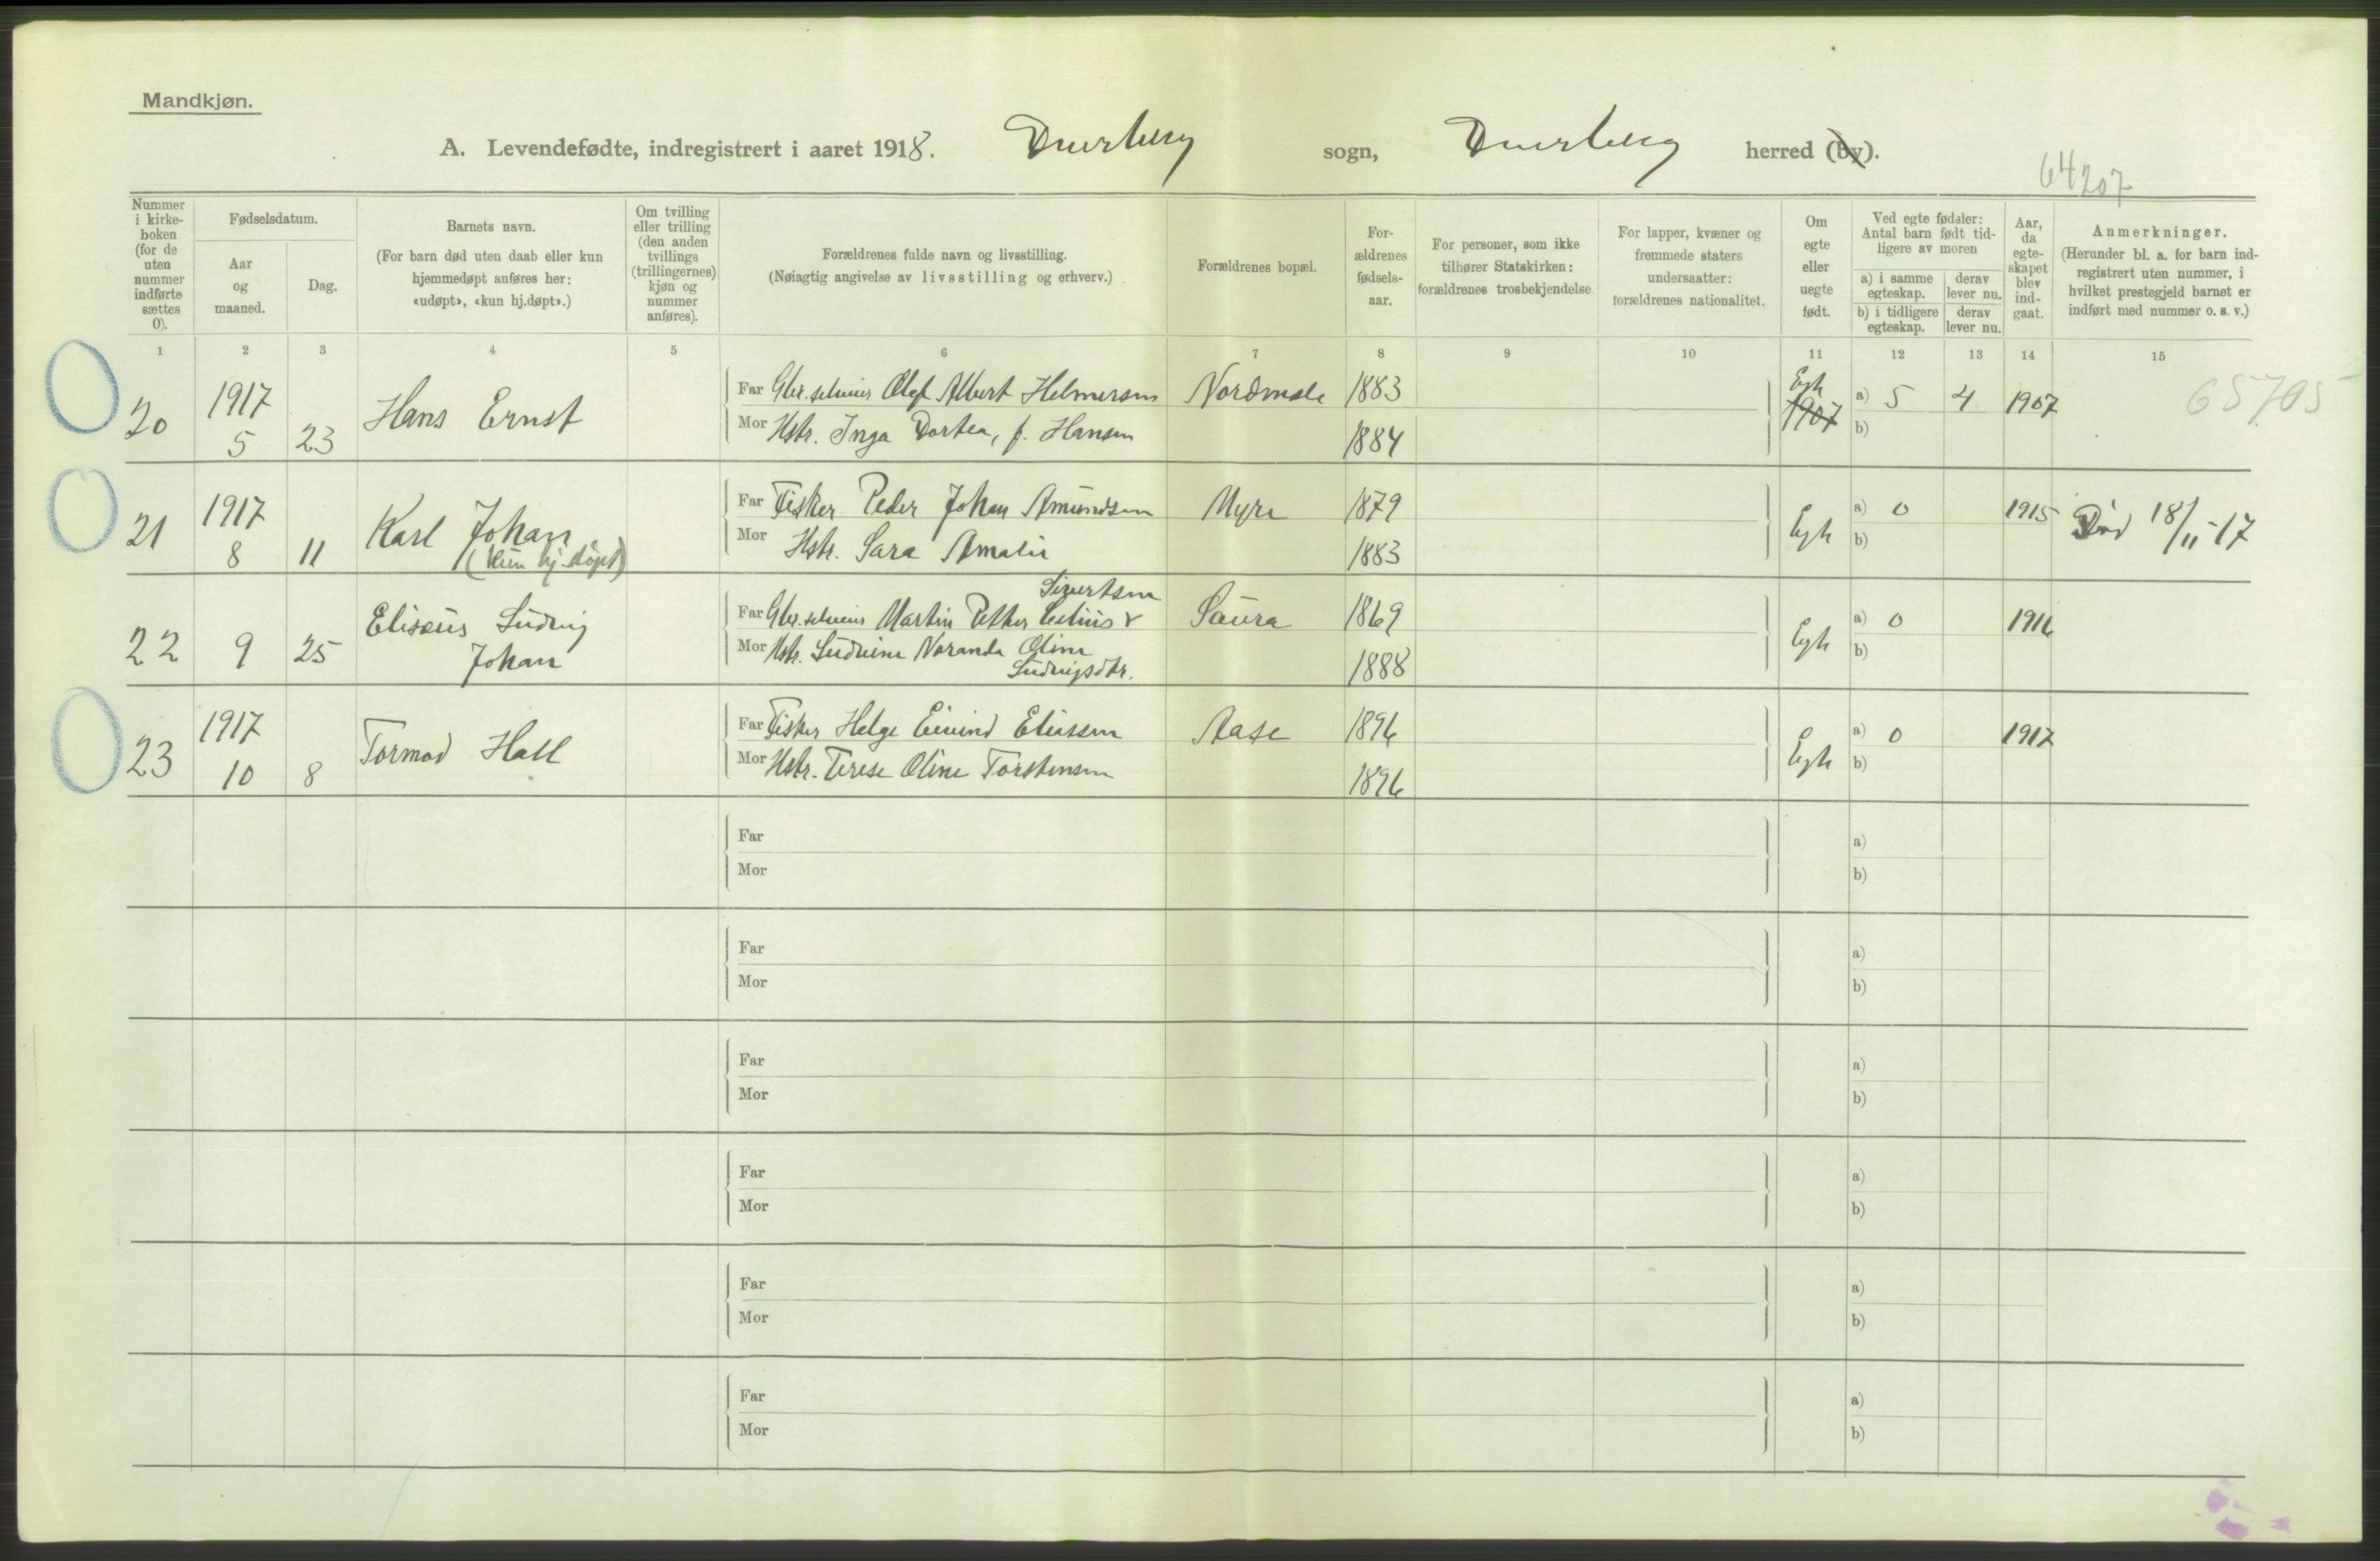 Mandkjøn.
A. Levendefødte, indregistrert i aaret 1918. Dverberg sogn, Dverberg herred (by).
64207
Nummer i kirkeboken (for de uten nummer indførte sættes 0).
Fødselsdatum.
Aar og maaned.
Dag.
Barnets navn.
(For barn død uten daab eller kun hjemmedøpt anføres her: «udøpt», «kun hj.døpt».)
Om tvilling eller trilling (den anden tvillings (trillingernes) kjøn og nummer anføres).
Forældrenes fulde navn og livsstilling.
(Nøiagtig angivelse av livsstilling og erhverv.)
Forældrenes bopæl.
Forældrenes fødselsaar.
For personer, som ikke tilhører Statskirken: forældrenes trosbekjendelse.
For lapper, kvæner og fremmede staters undersaatter: forældrenes nationalitet.
Om egte eller uegte født.
Ved egte fødsler: Antal barn født tidligere av moren
a) i samme egteskap. derav lever nu.
b) i tidligere egteskap. derav lever nu.
Aar, da egteskapet blev indgaat.
Anmerkninger.
(Herunder bl. a. for barn indregistrert uten nummer, i hvilket prestegjeld barnet er indført med nummer o. s. v.)
1 2 3 4 5 6 7 8 9 10 11 12 13 14 15
20 1917 5 23 Hans Ernst Far Olaf Albert Helmersen Nordmele 1883 Egte 1907 a) 5 4 1907 65705
Mor Hstr. Inga Dortea, f. Hansen 1884 b)
21 1917 8 11 Karl Johan (kun hj. døpt) Far Fisker Peder Johan Amundsen Myre 1879 Egte a) 0 1915 Død 18/11-17
Mor Hstr. Sara Amalie 1883 b)
22 9 25 Elisæus Ludvig Johan Far Martin Petter Sivertsen Saura 1869 Egte a) 0 1916
Mor Hstr. Ludvine Noranda Oline Ludvigsdtr. 1888 b)
23 1917 10 8 Tormod Hall Far Fisker Helge Eivind Eliassen Aase 1896 Egte a) 0 1917
Mor Hstr. Terese Oline Torstensen 1896 b)
Far a)
Mor b)
Far a)
Mor b)
Far a)
Mor b)
Far a)
Mor b)
Far a)
Mor b)
Far a)
Mor b)